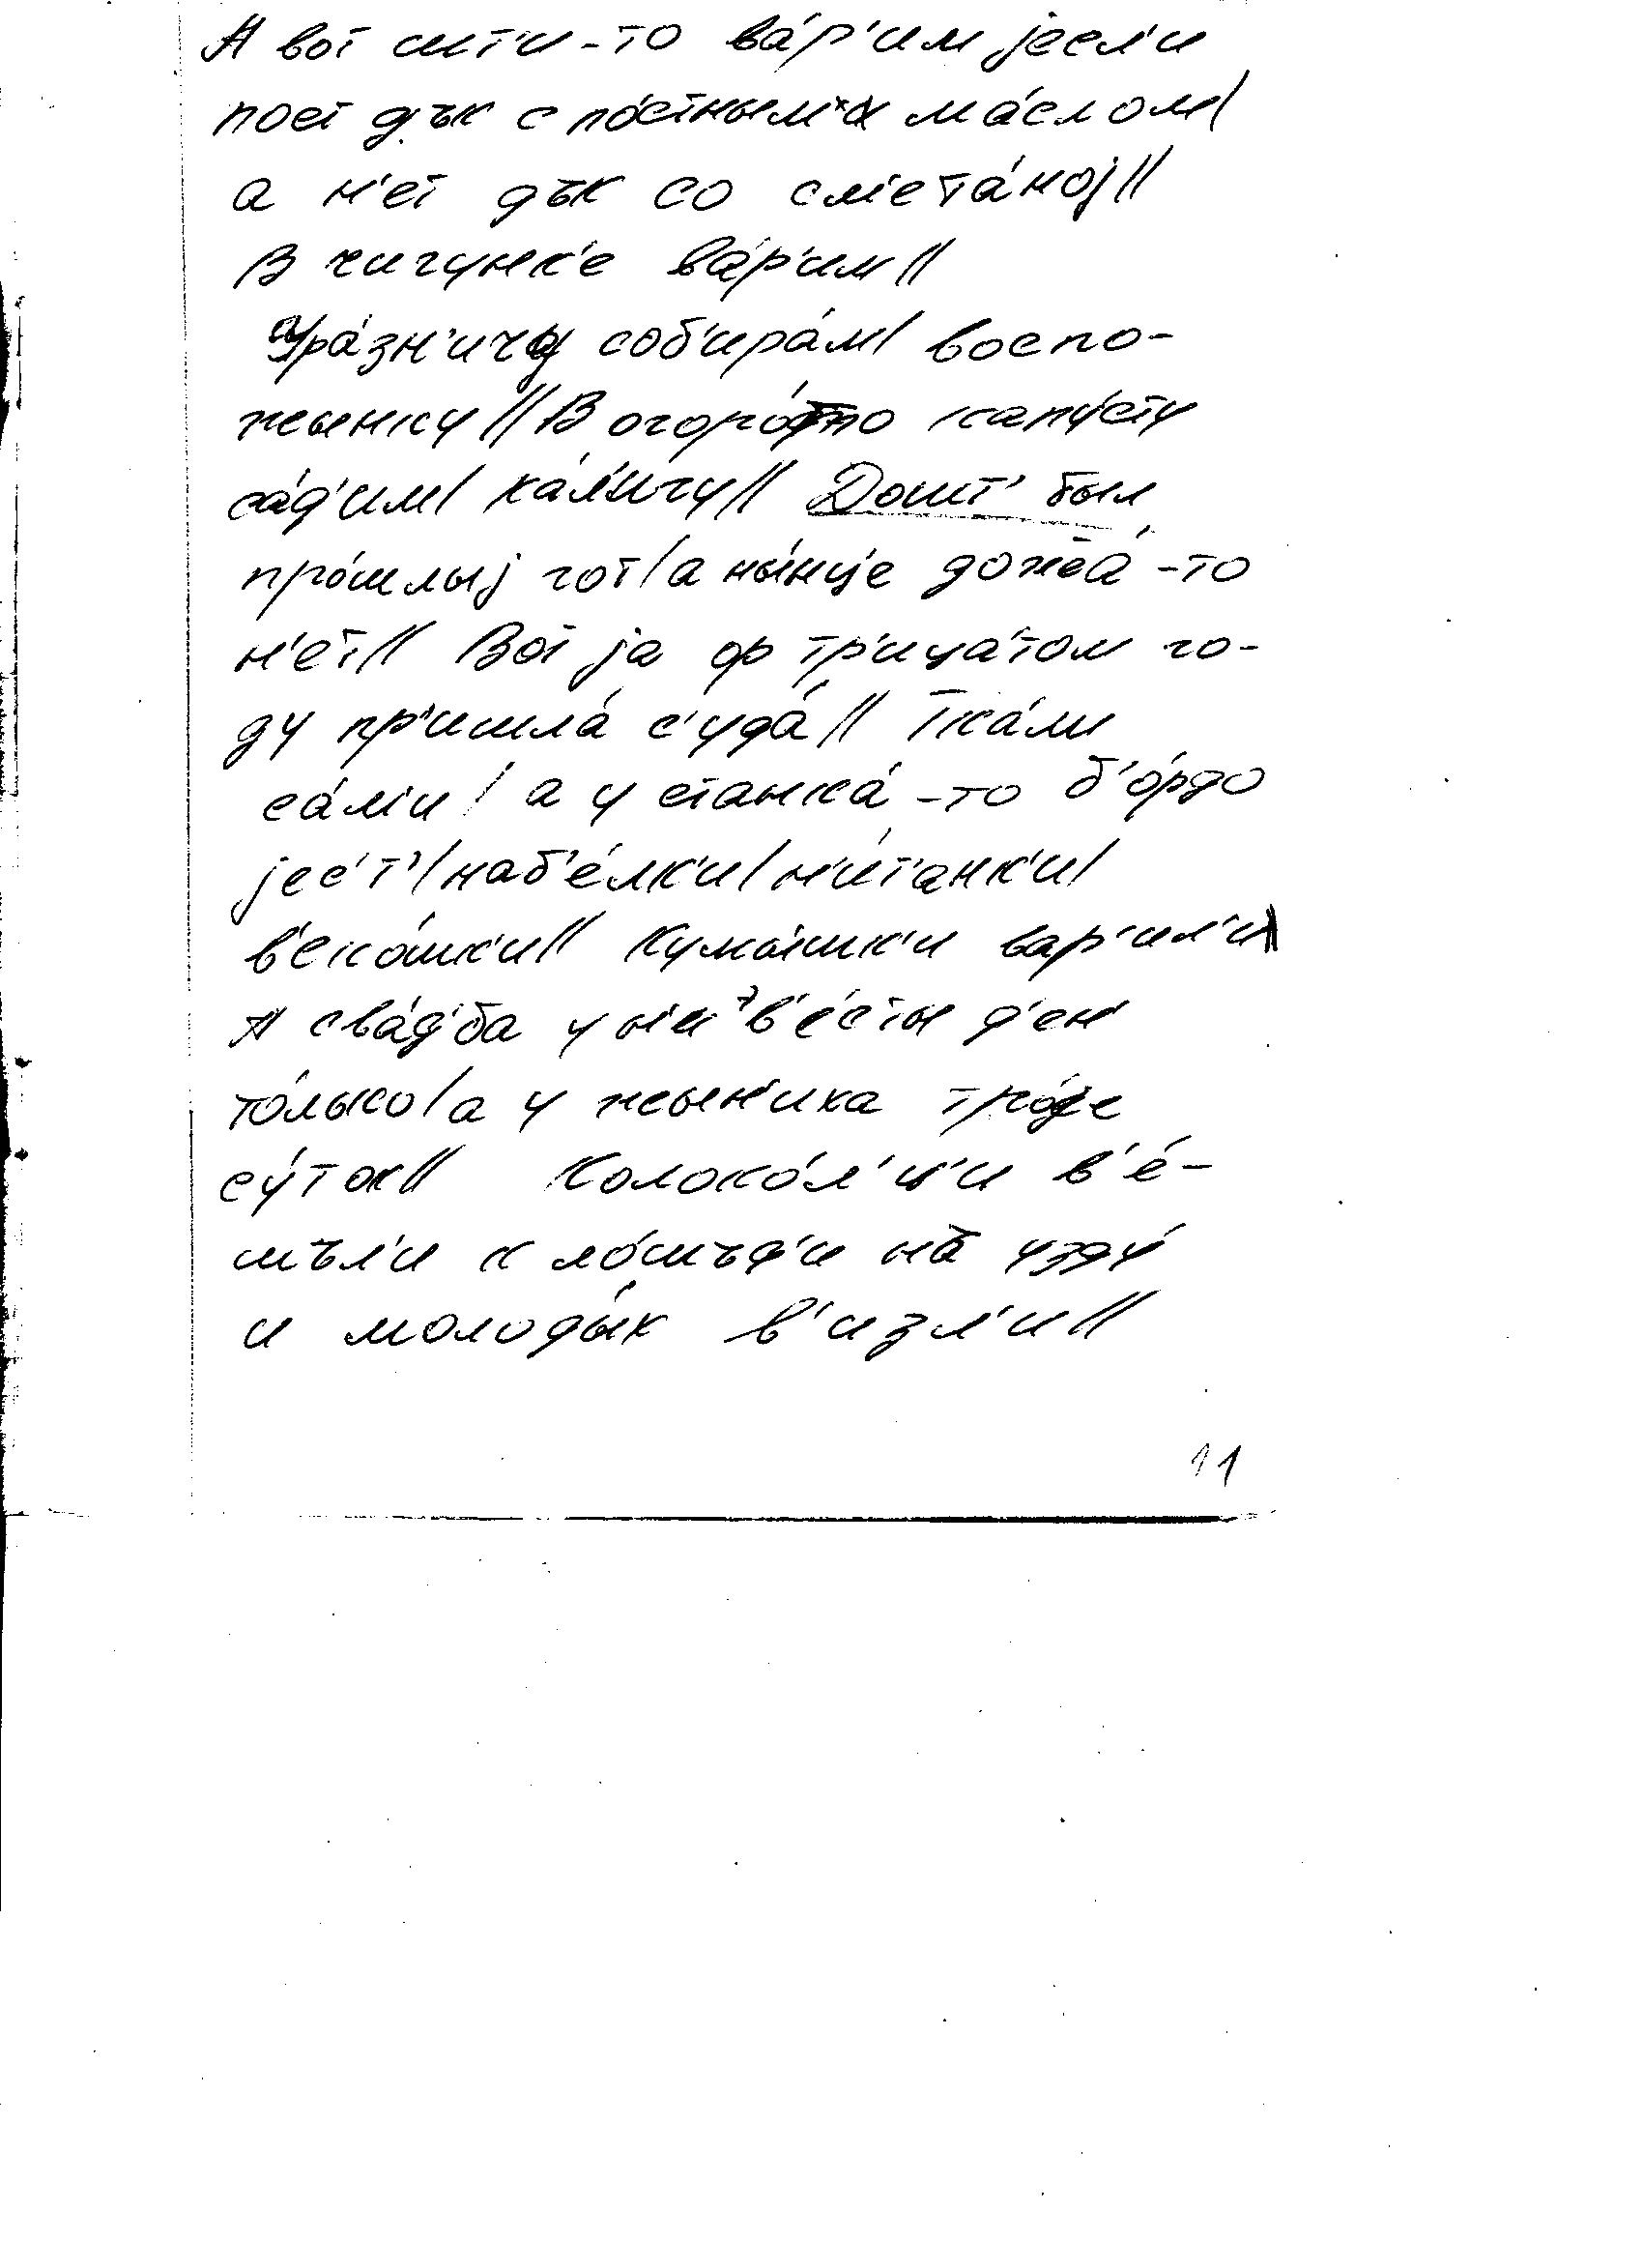 А вот шт'и-то ва́р'им јесл'и
пост дък с по́стным ма́слом/
а н'ет дък со см'ета́ној//
В чигунк'е ва́р'им//
собира́м/ воспо-
жынку// В огоро́тно капу́сту
са́д'им/ ка́л'игу// Дошт' был
про́шлыј гот/а ны́нце дожжа́-то
н'ет// Вот ја ф тр'ица́том го-
ду пр'ишла́ с'уда́// Тка́ли
са́м'и/ а у станка́-то б'о́рдо
јес'т'/наб'е́лк'и/н'и́т'анк'и/
в'еко́шк'и// Кумы́шк'и вар'ил'и//
А сва́д'ба у н'ив'е́сты д'ен'
то́лько/а у жын'иха тро́је
су́ток// Колоко́л'ц'и в'е́-
шъл'и к ло́шъд'и на́ узду́
и молоды́х в'изл'и//
11